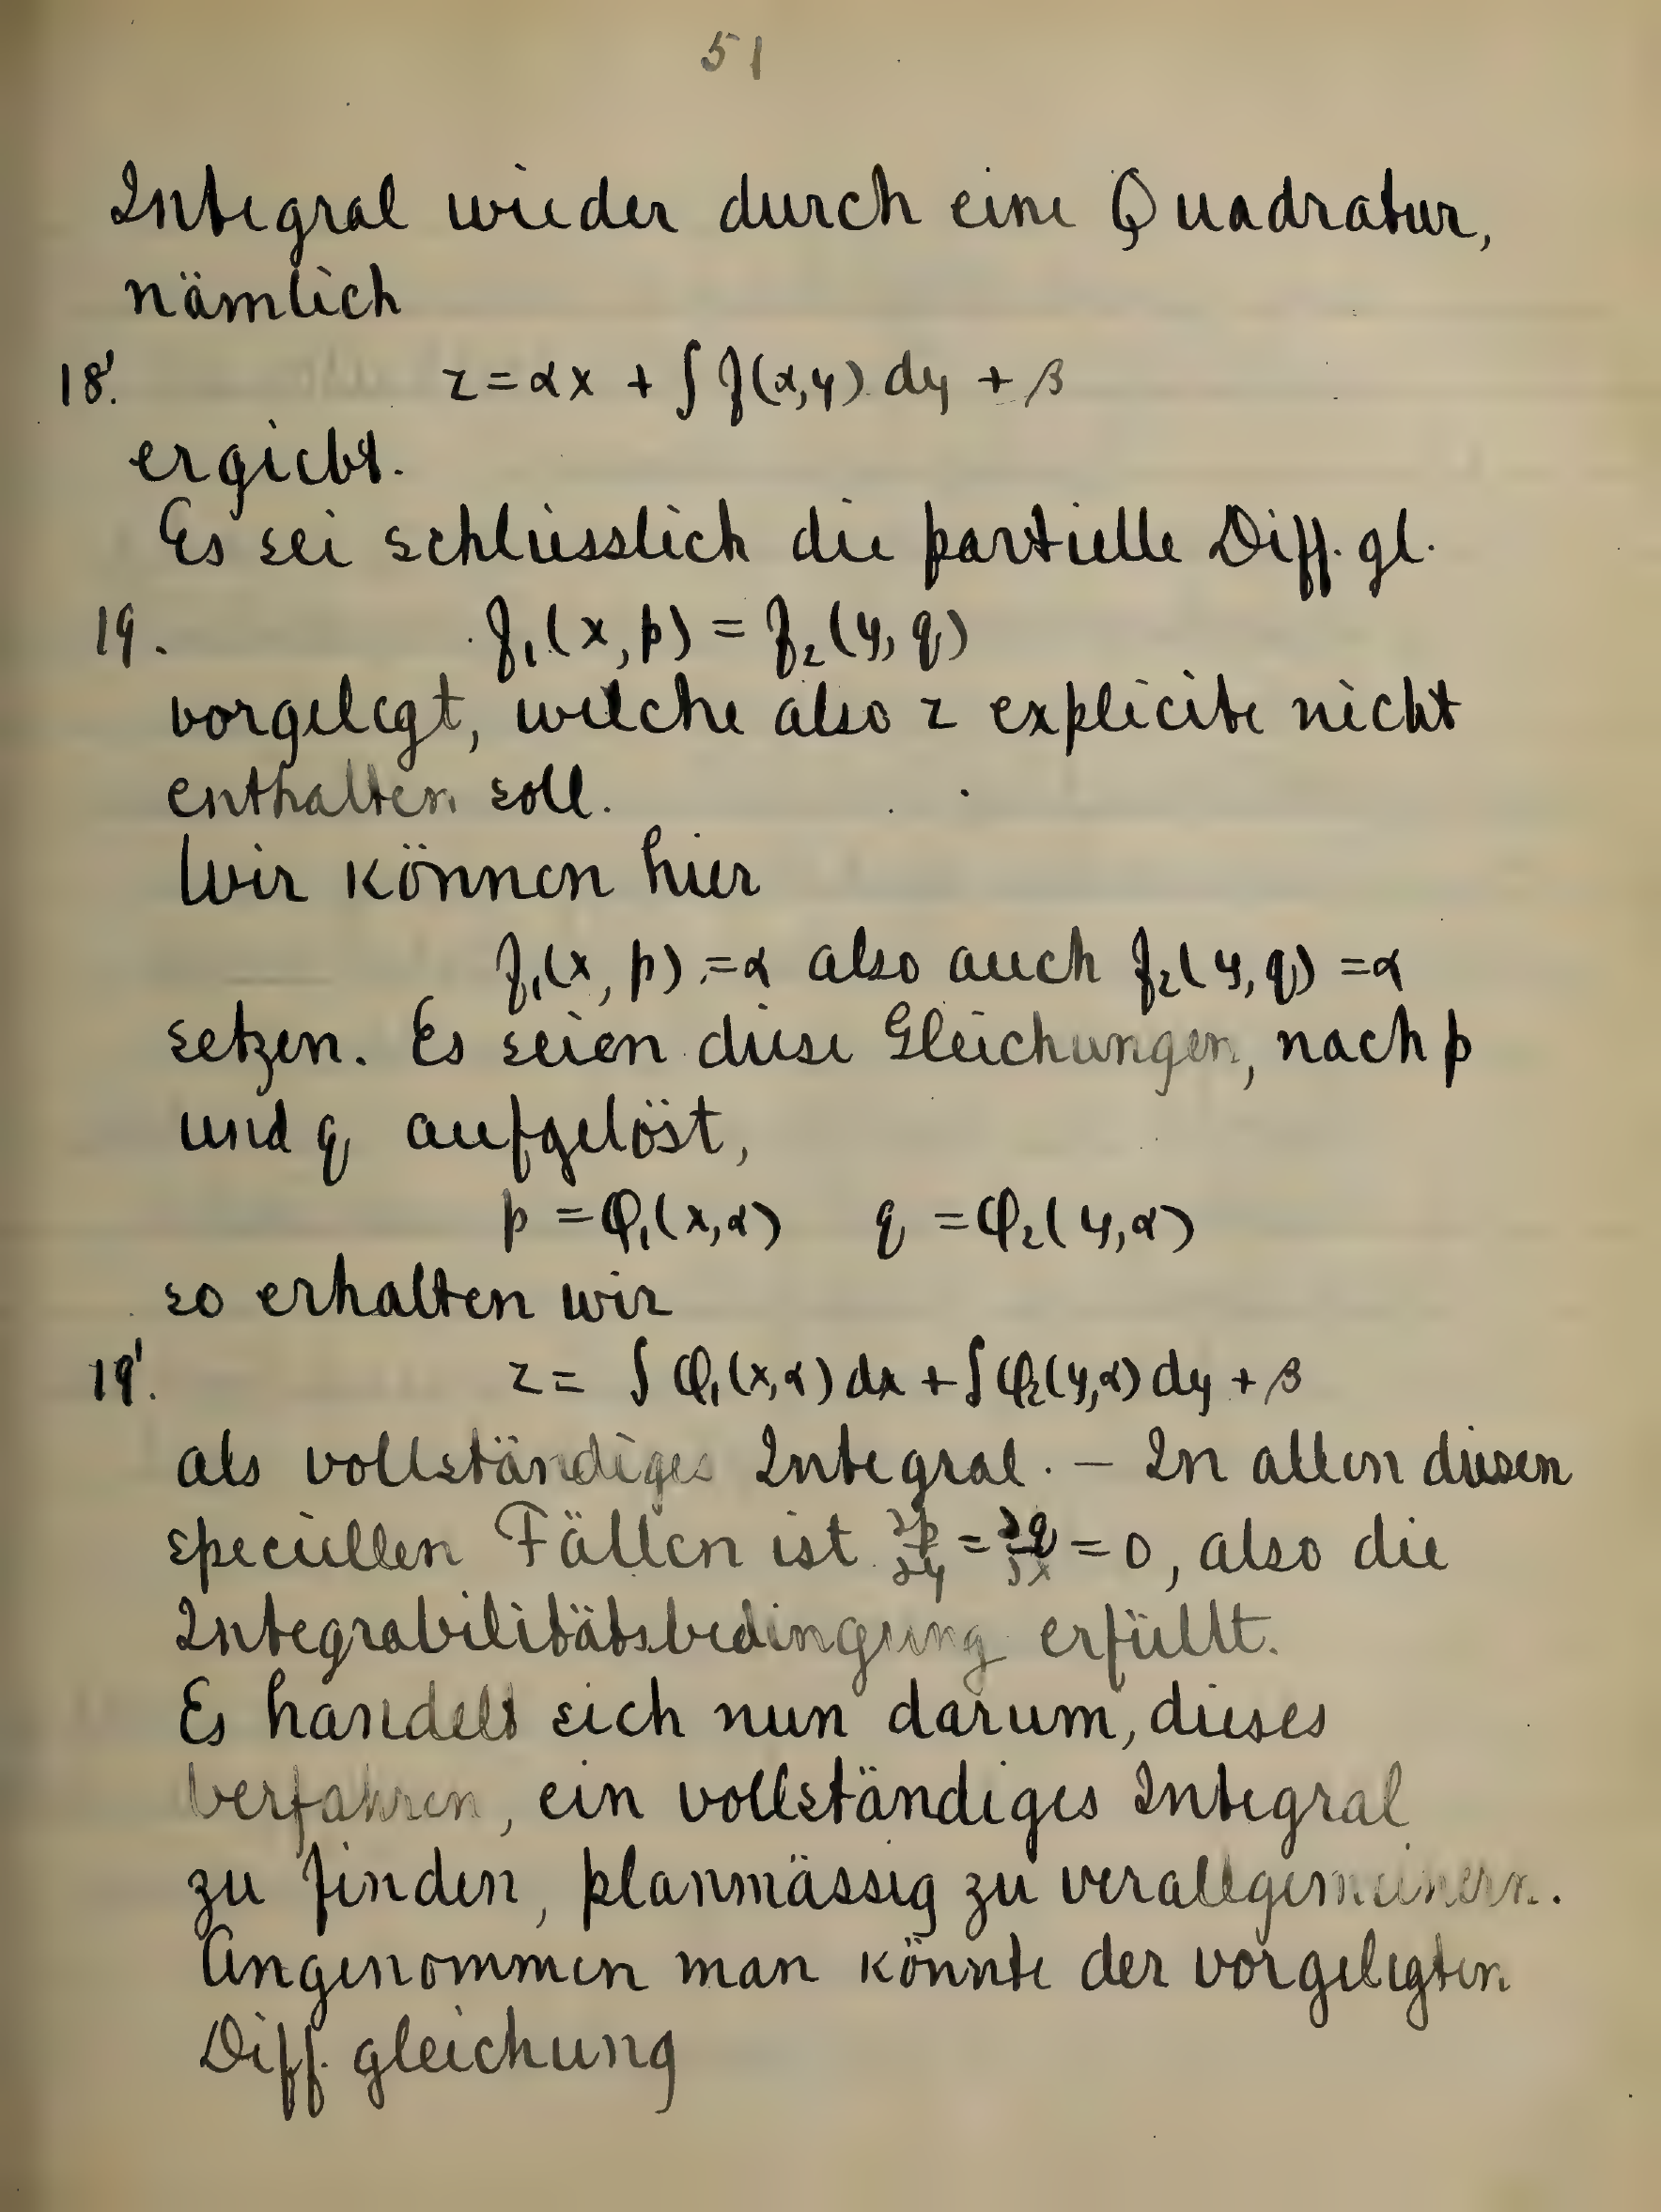 51
Integral wieder durch eine Quadratur,
nämlich
18'. z = αx + ∫ f(α,y) dy + β
ergiebt.
Es sei schliesslich die partielle Diff. gl.
19. f₁(x, p) = f₂(y, q)
vorgelegt, welche also z explicite nicht
enthalten soll.
Wir können hier
f₁(x, p) = α also auch f₂(y, q) = α
setzen. Es seien diese Gleichungen, nach p
und q aufgelöst,
p = φ₁(x,α) q = φ₂(y,α)
so erhalten wir
19'. z = ∫ φ₁(x,α) dx + ∫ φ₂(y,α) dy + β
als vollständiges Integral. – In allen diesen
speciellen Fällen ist ∂p/∂y = ∂q/∂x = 0, also die
Integrabilitätsbedingung erfüllt.
Es handelt sich nun darum, dieses
Verfahren, ein vollständiges Integral
zu finden, planmässig zu verallgemeinern.
Angenommen man könnte der vorgelegten
Diff. gleichung